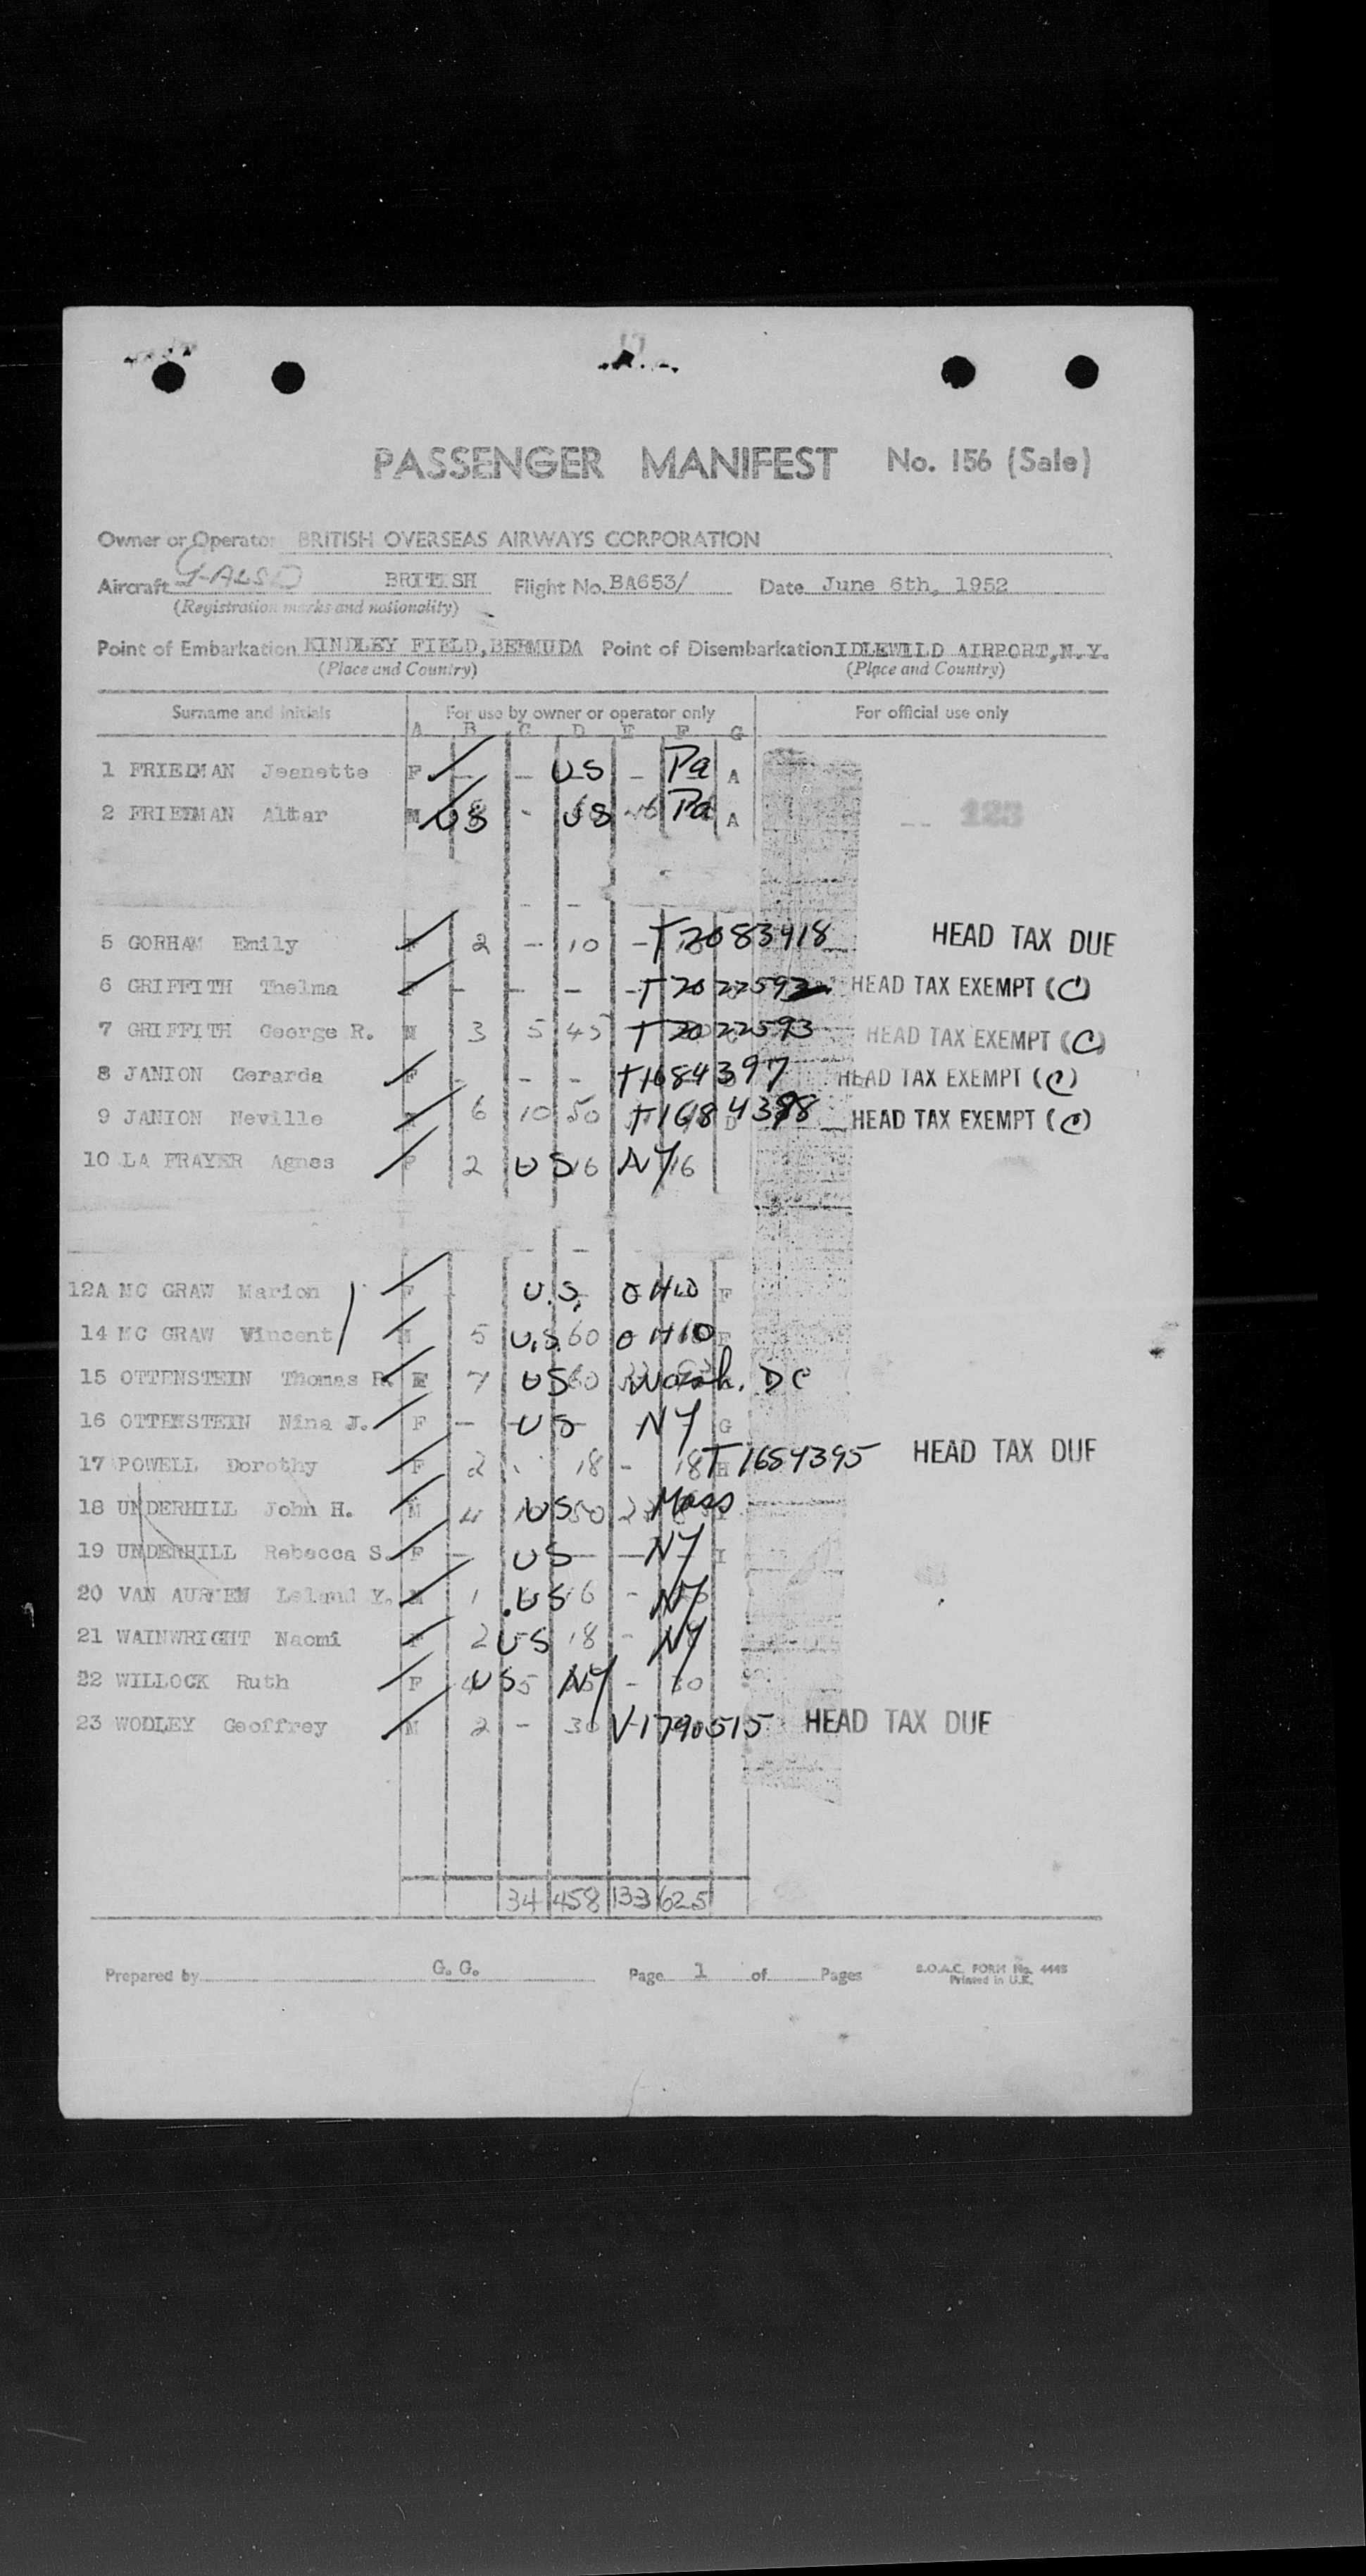 PASSENGER MANIFEST No. 156 (Sale)
Owner or Operator BRITISH OVERSEAS AIRWAYS CORPORATION
Aircraft G-ALSD BRITISH Flight No. BA653/ Date June 6th, 1952
(Registration marks and nationality)
Point of Embarkation KINDLEY FIELD, BERMUDA Point of Disembarkation IDLEWILD AIRPORT, N.Y.
(Place and Country) (Place and Country)
Surname and initials For use by owner or operator only For official use only
A B C D E F G
1 FRIEDMAN Jeanette F - - US - Pa A
2 FRIEDMAN Alttar M US - US 16 Pa A
123
5 GORHAM Emily F 2 - 10 - T2083918 HEAD TAX DUE
6 GRIFFITH Thelma F - - - - T2022592 HEAD TAX EXEMPT (C)
7 GRIFFITH George R. M 3 5 45 T2022593 HEAD TAX EXEMPT (C)
8 JANION Gerarda F - - - T1684397 HEAD TAX EXEMPT (C)
9 JANION Neville 6 10 50 T1684398 D HEAD TAX EXEMPT (C)
10 LA FRAYER Agnes F 2 US 16 NY 16
12A MC GRAW Marion F U.S. OHIO F
14 MC GRAW Vincent M 5 U.S. 60 OHIO F
15 OTTENSTEIN Thomas R. 7 US 60 Wash. DC
16 OTTENSTEIN Nina J. F - US NY G
17 POWELL Dorothy F 2 18 - 18 T1684395 H HEAD TAX DUE
18 UNDERHILL John H. M 4 US 50 Mass I
19 UNDERHILL Rebecca S. F - US - - NY I
20 VAN AURMEN Leland Y. M 1 US 16 - NY
21 WAINWRIGHT Naomi F 2 US 18 - NY
22 WILLOCK Ruth F 4 US 5 NY -
23 WODLEY Geoffrey M 2 - 30 V1790515 HEAD TAX DUE
34 458 133 625
Prepared by G. G. Page 1 of Pages B.O.A.C. FORM No. 4445
Printed in U.K.